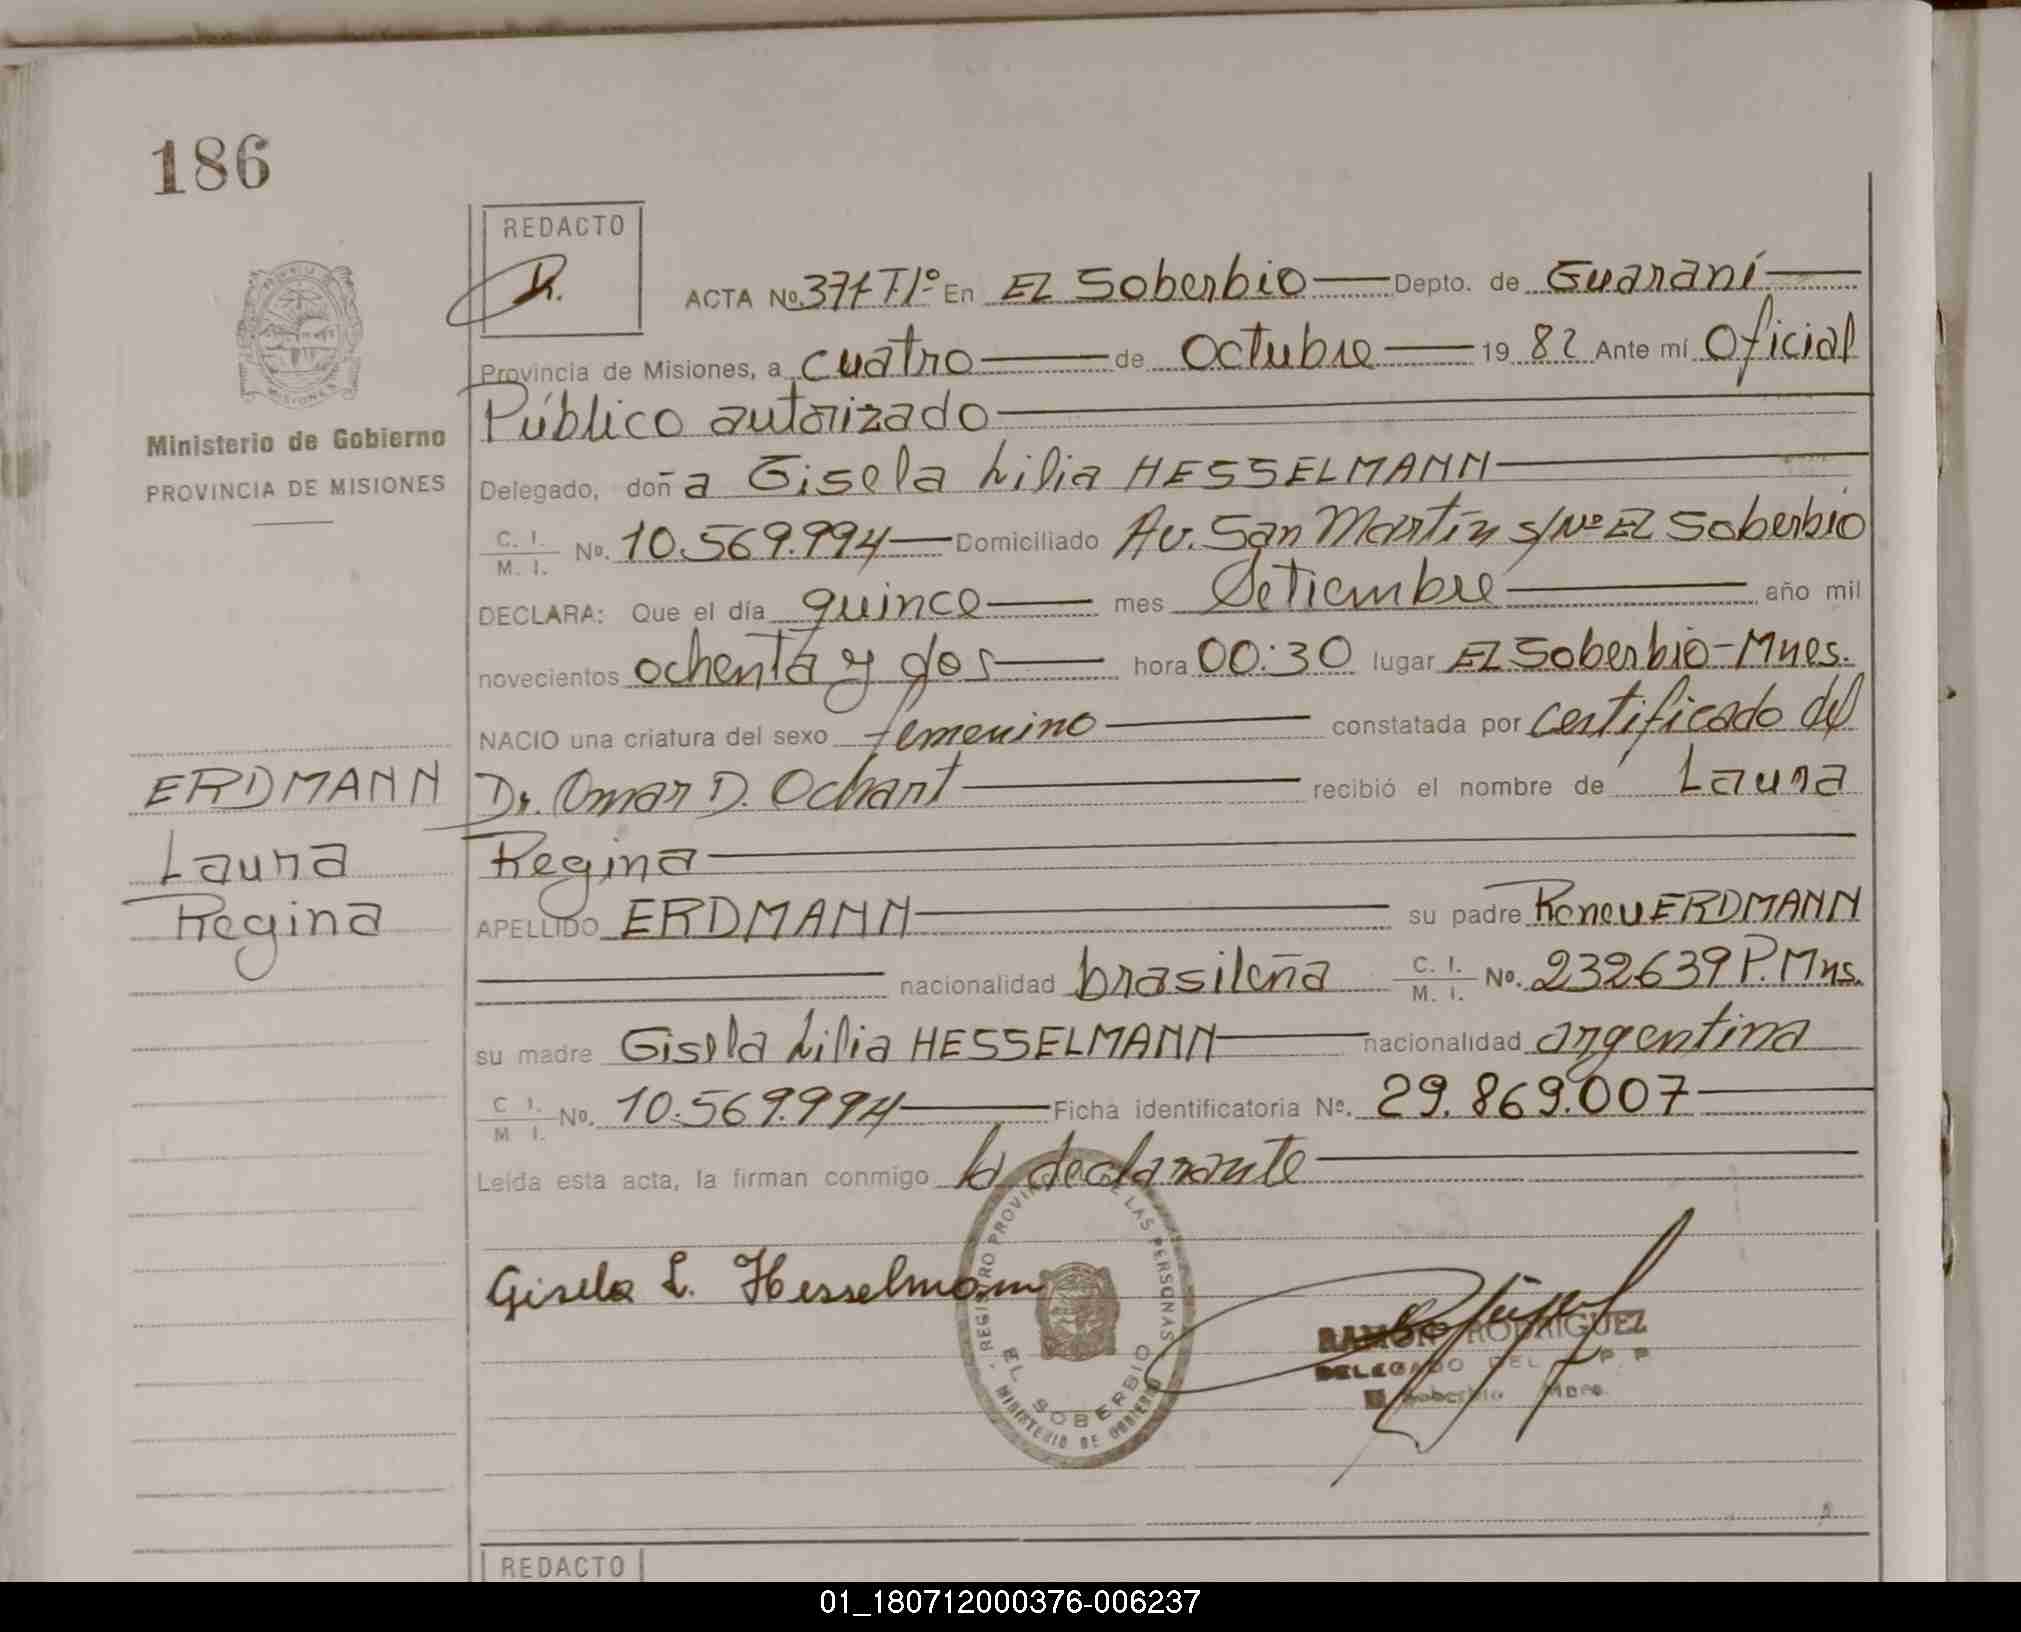 186
REDACTO
D.
ACTA No. 371 T1º En El Soberbio Depto. de Guaraní
Provincia de Misiones, a cuatro de Octubre 19 82 Ante mí Oficial
Público autorizado
Ministerio de Gobierno
PROVINCIA DE MISIONES
Delegado, doña Gisela Lilia HESSELMANN
C. I. / M. I. No. 10.569.994 Domiciliado Av. San Martín s/Nº El Soberbio
DECLARA: Que el día quince mes Setiembre año mil
novecientos ochenta y dos hora 00:30 lugar El Soberbio-Mnes.
NACIO una criatura del sexo femenino constatada por certificado del
Dr. Omar D. Ochant recibió el nombre de Laura
Regina
ERDMANN
Laura
Regina
APELLIDO ERDMANN su padre Roneu ERDMANN
nacionalidad brasileña C. I. / M. I. No. 232639 P. Mns.
su madre Gisela Lilia HESSELMANN nacionalidad argentina
C. I. / M. I. No. 10.569.994 Ficha identificatoria No. 29.869.007
Leída esta acta, la firman conmigo la declarante
Gisela L. Hesselmann
REGISTRO PROVINCIAL DE LAS PERSONAS
EL SOBERBIO
MINISTERIO DE GOBIERNO
RAMON RODRIGUEZ
DELEGADO DEL R P P
El Soberbio Mnes.
REDACTO
01_180712000376-006237